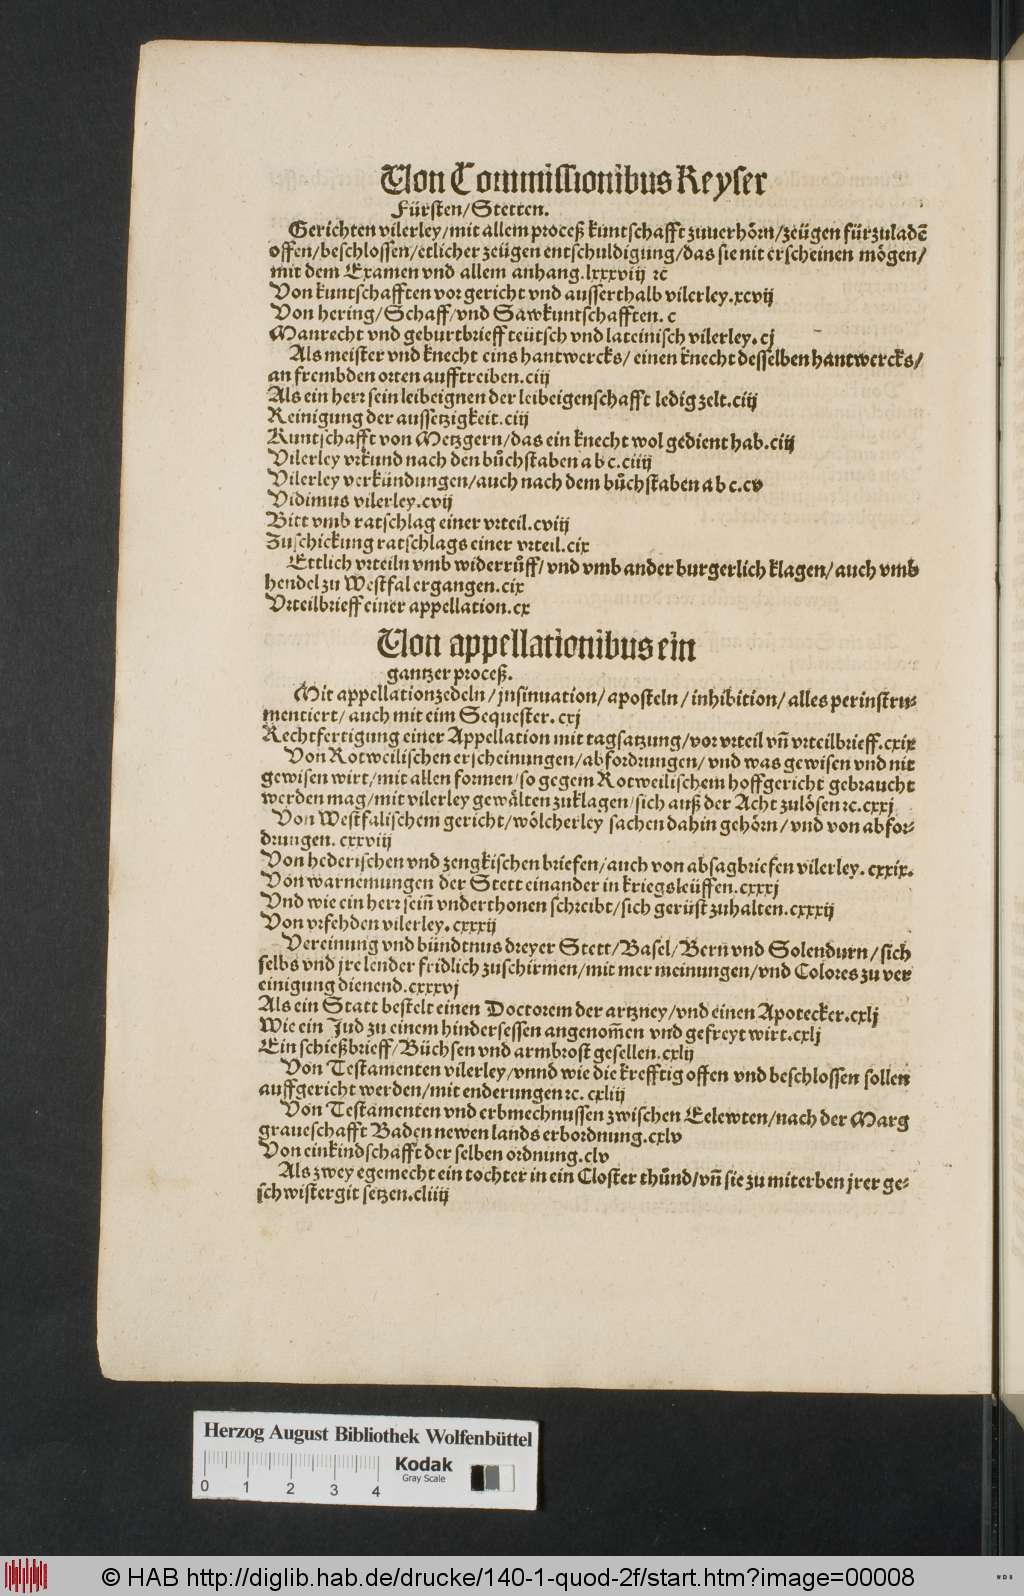 Von Commissionibus Keyser
Fürsten/Stetten.
Gerichten vilerley/mit allem proceß kuntschafft zuuerhörn/zeügen fürzuladẽ
offen/beschlossen/etlicher zeügen entschuldigung/das sie nit erscheinen mögen/
mit dem Examen vnd allem anhang.lxxxviij ⁊c
Von kuntschafften vor gericht vnd ausserthalb vilerley.xcvij
Von hering/Schaff/vnd Sawkuntschafften. c
Manrecht vnd geburtbrieff teütsch vnd lateinisch vilerley.cj
Als meister vnd knecht eins hantwercks/ einen knecht desselben hantwercks/
an frembden orten aufftreiben.cij
Als ein herr sein leibeignen der leibeigenschafft ledig zelt.cij
Reinigung der aussetzigkeit.cij
Kuntschafft von Metzgern/das ein knecht wol gedient hab.ciij
Vilerley vrkund nach den bůchstaben a b c.ciiij
Vilerley verkündungen/auch nach dem bůchstaben a b c.cv
Vidimus vilerley.cvij
Bitt vmb ratschlag einer vrteil.cviij
Zuschickung ratschlags einer vrteil.cix
Ettlich vrteiln vmb widerrůff/ vnd vmb ander burgerlich klagen/ auch vmb
hendel zu Westfal ergangen.cix
Vrteilbrieff einer appellation.cx
Von appellationibus ein
gantzer proceß.
Mit appellationzedeln/jnsinuation/aposteln/inhibition/alles per instru-
mentiert/auch mit eim Sequester. cxj
Rechtfertigung einer Appellation mit tagsatzung/vor vrteil vñ vrteilbrieff.cxix
Von Rotweilischen erscheinungen/abfordrungen/ vnd was gewisen vnd nit
gewisen wirt/mit allen formen/so gegem Rotweilischem hoffgericht gebraucht
werden mag/mit vilerley gewälten zuklagen/sich auß der Acht zulösen ⁊c.cxxj
Von Westfalischem gericht/wölcherley sachen dahin gehörn/vnd von abfor-
drungen. cxxviij
Von hederischen vnd zengkischen briefen/auch von absagbriefen vilerley. cxxix.
Von warnemungen der Stett einander in kriegsleüffen.cxxxj
Vnd wie ein herr seiñ vnderthonen schreibt/sich gerüst zuhalten.cxxxij
Von vrfehden vilerley.cxxxij
Vereinung vnd bündtnus dreyer Stett/Basel/Bern vnd Solendurn/sich
selbs vnd jre lender fridlich zuschirmen/mit mer meinungen/vnd Colores zu ver
einigung dienend.cxxxvj
Als ein Statt bestelt einen Doctorem der artzney/vnd einen Apotecker.cxlj
Wie ein Jud zu einem hindersessen angenom̃en vnd gefreyt wirt.cxlj
Ein schießbrieff/Büchsen vnd armbrost gesellen.cxlij
Von Testamenten vilerley/vnnd wie die krefftig offen vnd beschlossen sollen
auffgericht werden/mit enderungen ⁊c. cxliij
Von Testamenten vnd erbmechnussen zwischen Eelewten/nach der Marg
graueschafft Baden newen lands erbordnung.cxlv
Von einkindschafft der selben ordnung.clv
Als zwey egemecht ein tochter in ein Closter thůnd/vñ sie zu miterben jrer ge-
schwistergit setzen.cliiij
Herzog August Bibliothek Wolfenbüttel
Kodak
Gray Scale
0 1 2 3 4
© HAB http://diglib.hab.de/drucke/140-1-quod-2f/start.htm?image=00008